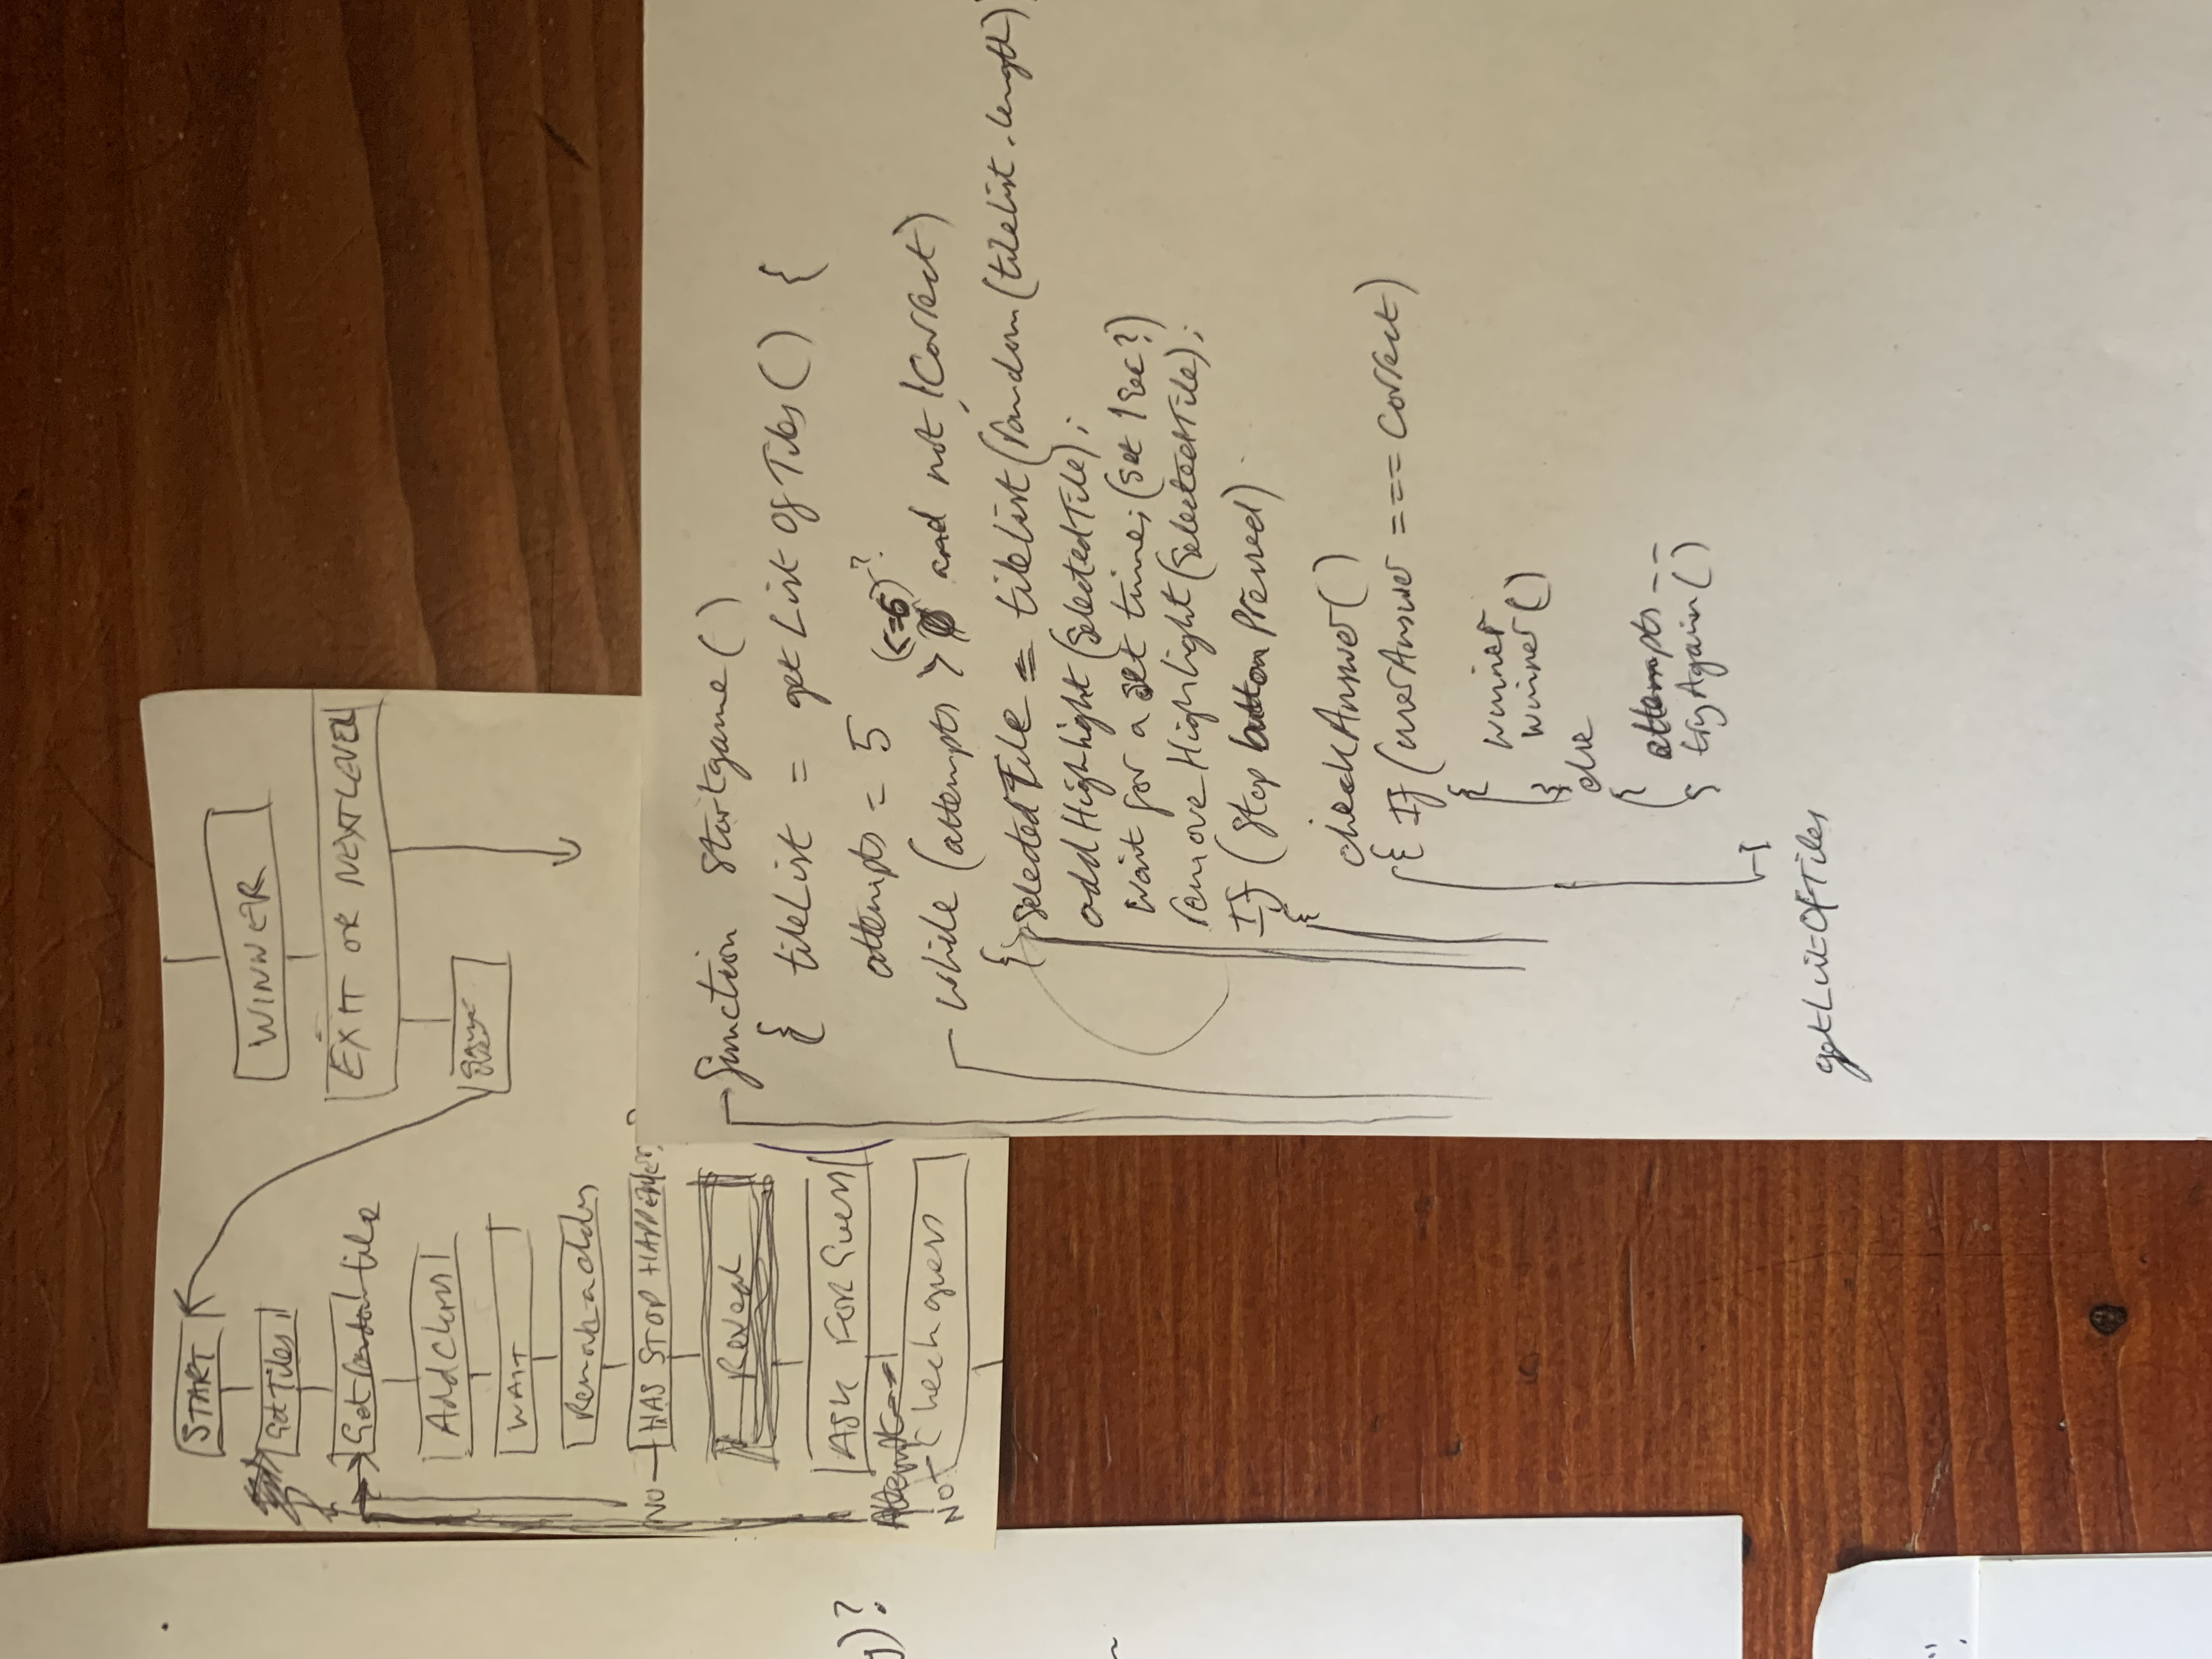 START
Get Tiles
Get Random tile
Add Class
WAIT
Remove
HAS STOP HAPPENED?
NO
Reveal
ASK FOR Guess
Attempts
NOT
Check guess
WINNER
EXIT OR NEXT LEVEL
y)?
function startgame()
{ tileList = getListOfTiles() {
attempts = 5
(<=6)?
While (attempts > 0 and not /Correct)
{ SelectedTile = tileList(Random(tilelist.length)
addHighlight(SelectedTile);
Wait for a set time; (Set 1 Sec?)
removeHighlight(SelectedTile);
If (Stop button Pressed)
{
checkAnswer()
{ If (userAnswer === Correct)
{
winner
winner()
}
else
{ attempts --
tryAgain()
}
getListOfTiles